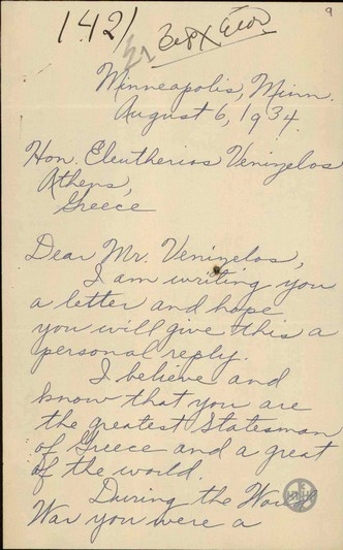 9
1421
Minneapolis, Minn.
August 6, 1934.
Hon. Eleutherios Venizelos
Athens,
Greece
Dear Mr. Venizelos,
I am writing you
a letter and hope
you will give this a
personal reply.
I believe and
know that you are
the greatest Statesman
of Greece and a great
of the world.
During the World
War you were a